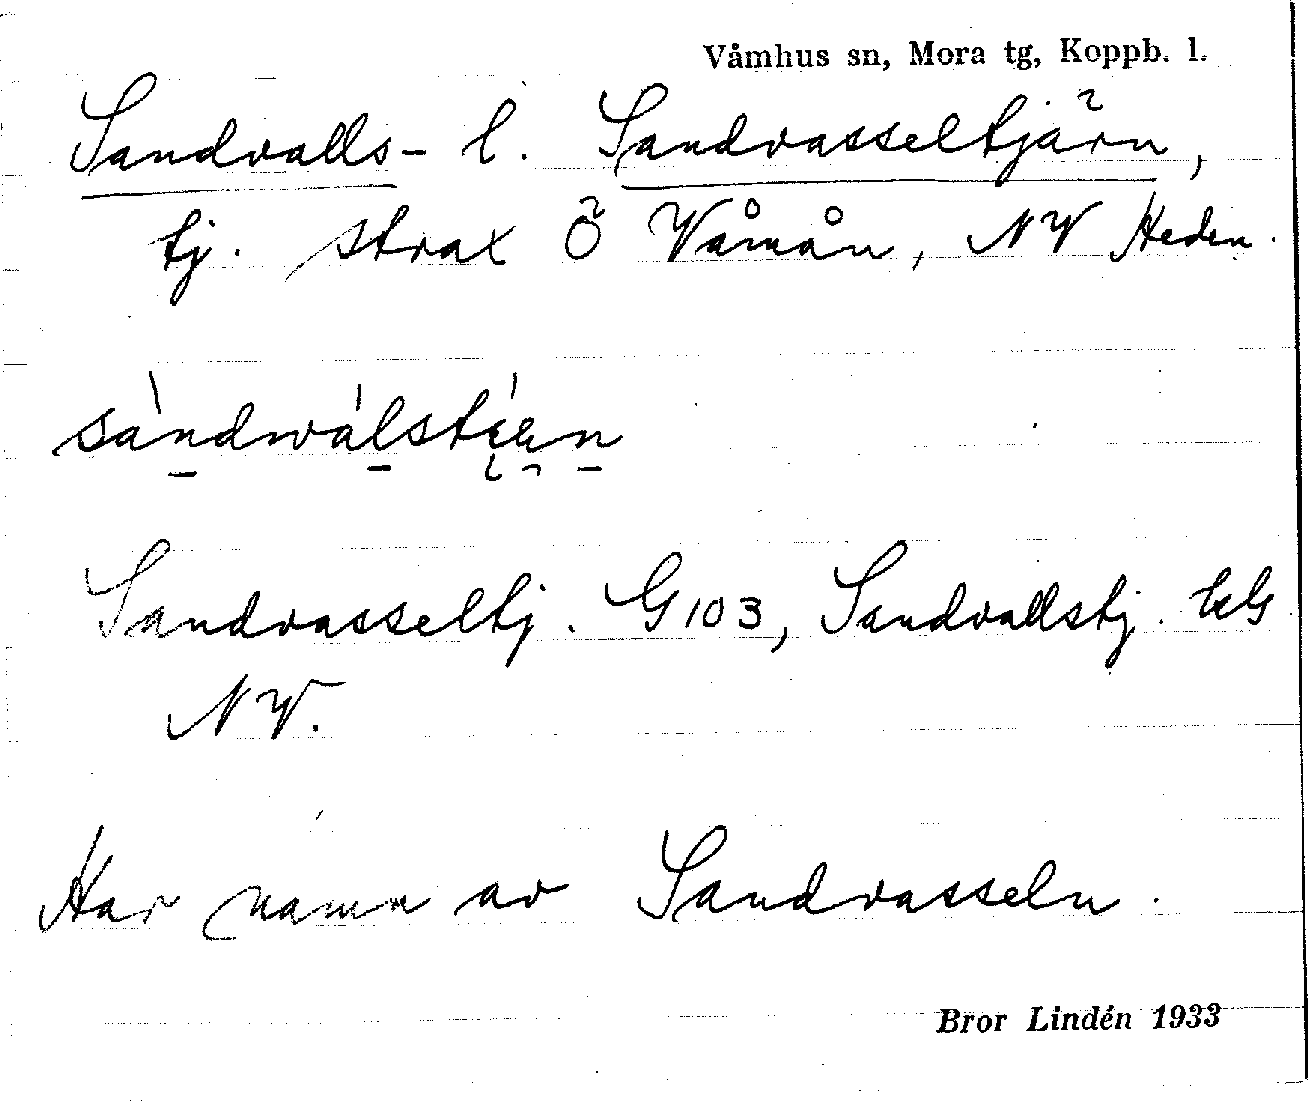 Våmhus sn, Mora tg, Koppb. l.
Sandvalls- l. Sandvasseltjärn,
tj. strax Ö Våmån, NV Heden.
Sandvasseltj. G 103, Sandvallstj.
NV.
Har namn av Sandvasseln.
Bror Lindén 1933